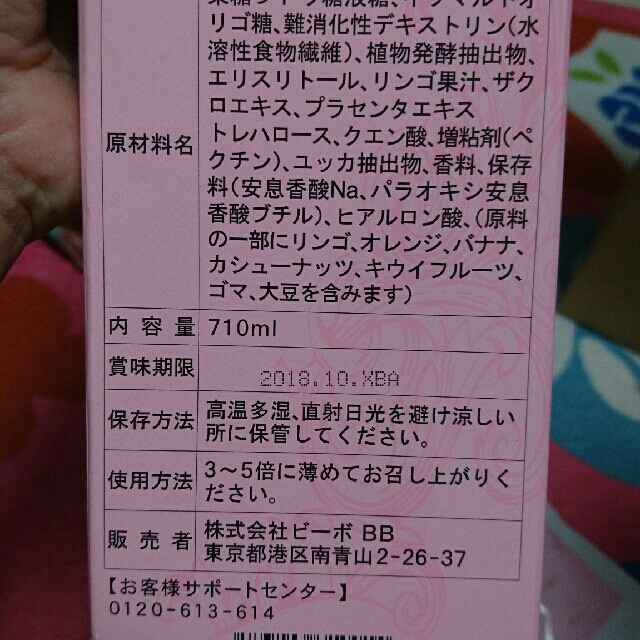 リゴ糖、難消化性デキストリン(水
溶性食物繊維)、植物発酵抽出物、
エリスリトール、リンゴ果汁、ザク
ロエキス、プラセンタエキス
原材料名
トレハロース、クエン酸、増粘剤(ペ
クチン)、ユッカ抽出物、香料、保存
料(安息香酸Na、パラオキシ安息
香酸ブチル)、ヒアルロン酸、(原料
の一部にリンゴ、オレンジ、バナナ、
カシューナッツ、キウイフルーツ、
ゴマ、大豆を含みます)
内容量 710ml
賞味期限 2018.10.XBA
保存方法 高温多湿、直射日光を避け涼しい
所に保管してください。
使用方法 3〜5倍に薄めてお召し上がりく
ださい。
販売者 株式会社ビーボ BB
東京都港区南青山2-26-37
【お客様サポートセンター】
0120-613-614